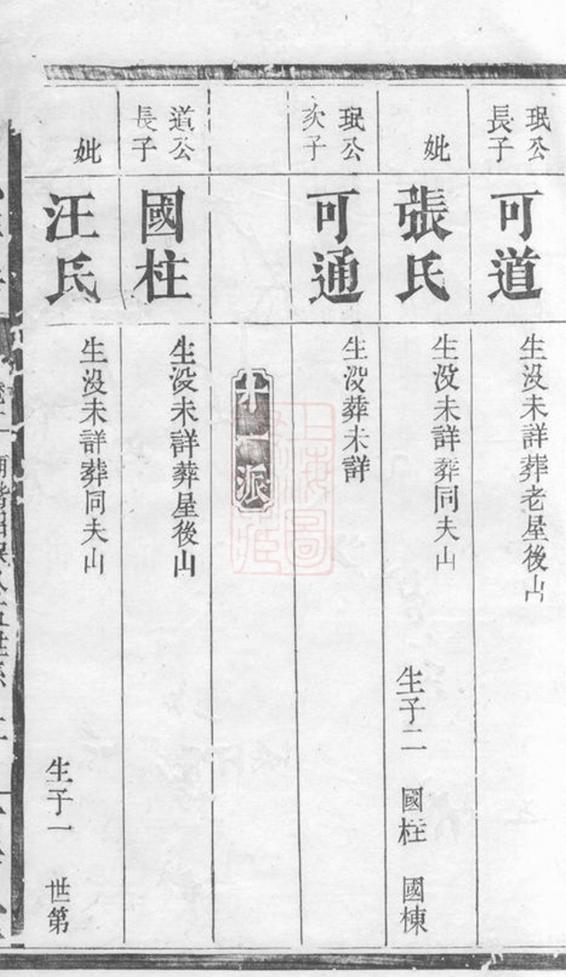 珉公
長子
可道
生没未詳葬老屋後山
妣
張氏
生没未詳葬同夫山
生子二 國柱 國棟
珉公
次子
可通
生没葬未詳
十一派
道公
長子
國柱
生没未詳葬屋後山
妣
汪氏
生没未詳葬同夫山
生子一 世第